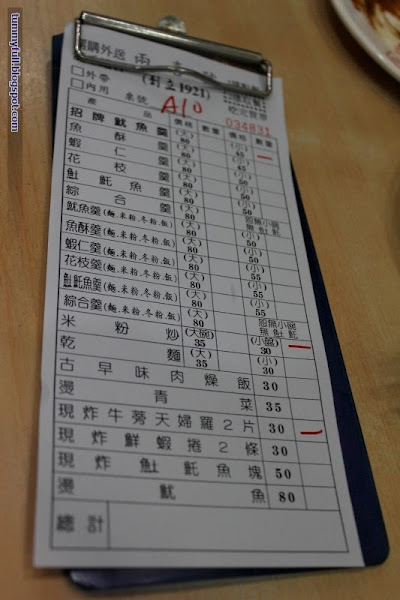 tummyfull.blogspot.com
調外送 兩喜號
□外帶 (創立1921)
□內用 桌號 A10 034831
產品 價格 數量 價格 數量
招牌魷魚羹 (大) 80
魚酥羹 (大) 80
蝦仁羹 (大) 80 (小) 45
花枝羹 (大) 80 (小) 50
𩵚魠魚羹 (大) 80 (小) 50
綜合羹 (大) 80
魷魚羹(麵.米粉.冬粉.飯) (大) 80
魚酥羹(麵.米粉.冬粉.飯) (大) 80 (小) 50
蝦仁羹(麵.米粉.冬粉.飯) (大) 80 (小) 50
花枝羹(麵.米粉.冬粉.飯) (大) 80 (小) 55
𩵚魠魚羹(麵.米粉.冬粉.飯) (大) 80 (小) 55
綜合羹(麵.米粉.冬粉.飯) (大) 80
米粉炒 (大碗) 35 (小盤) 30
乾麵 (大) 35 (小) 30
古早味肉燥飯 30
燙青菜 35
現炸牛蒡天婦羅2片 30
現炸鮮蝦捲2條 30
現炸𩵚魠魚塊 50
燙魷魚 80
總計